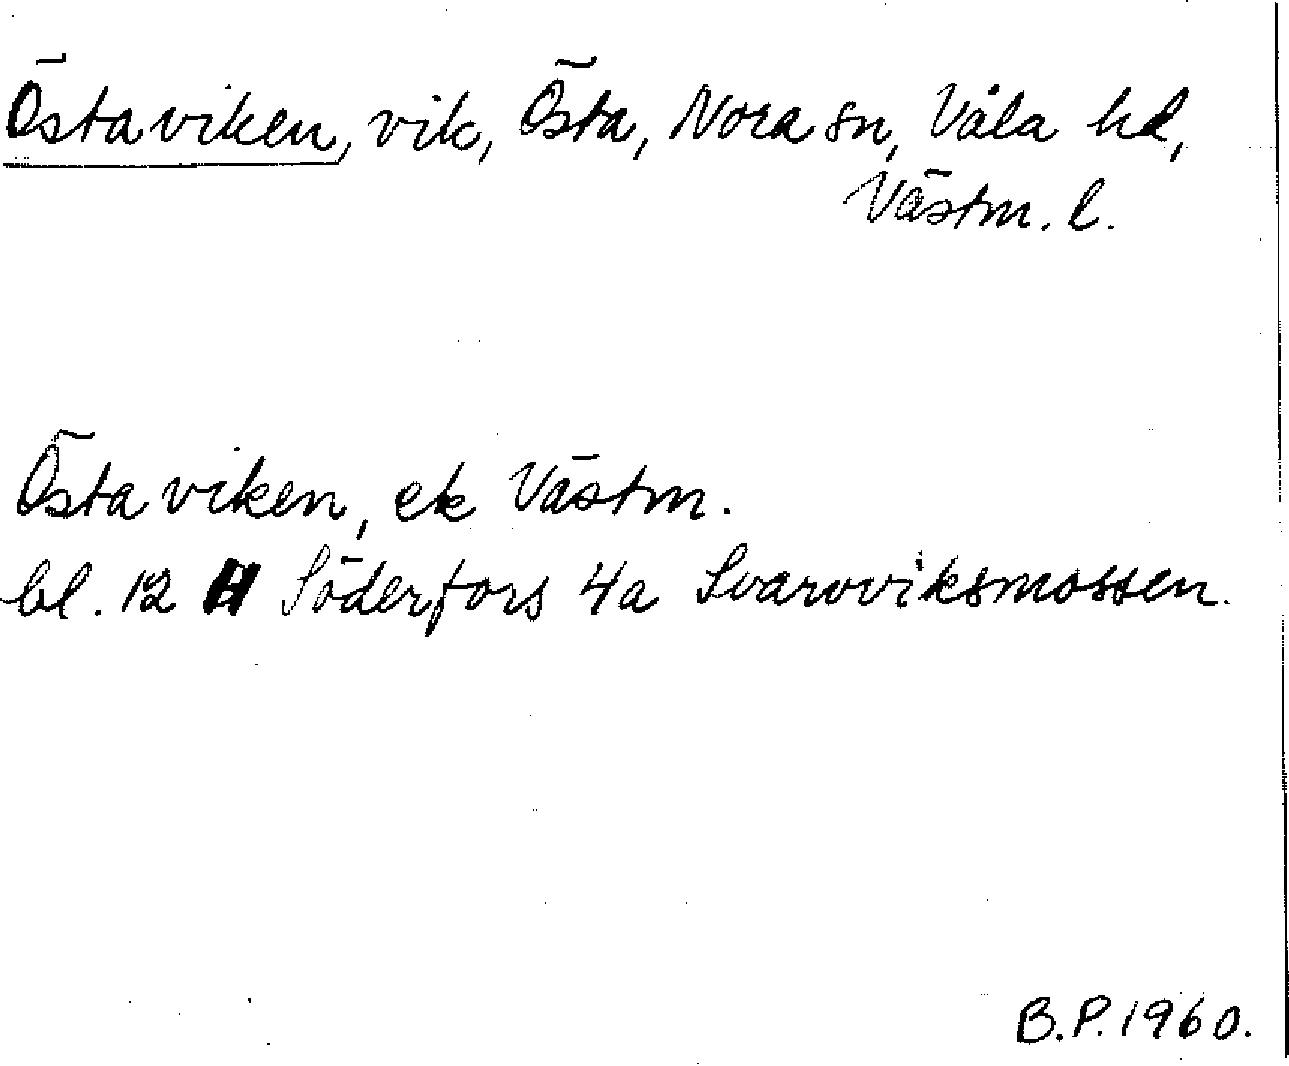 Östaviken, vik, Östa, Nora sn, Våla hd,
Västm. l.
Östaviken, ek Västm.
bl. 12 H Söderfors 4a Svarvviksmossen.
B.P. 1960.